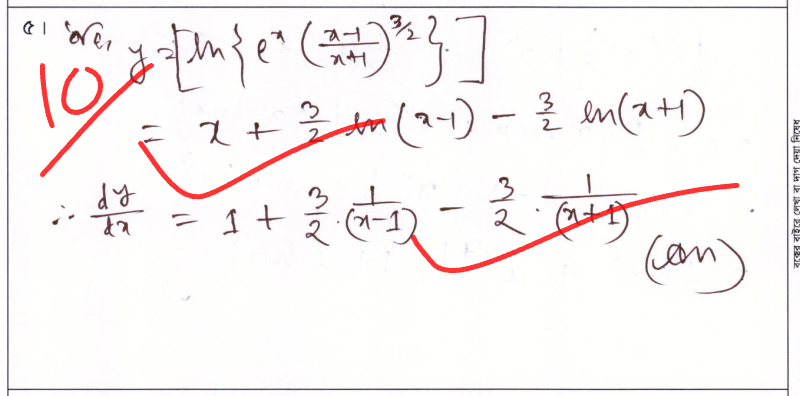 ৫। ধরি, y = [ln{e^x ((x-1)/(x+1))^{3/2}}]
10
= x + 3/2 ln(x-1) - 3/2 ln(x+1)
∴ dy/dx = 1 + 3/2 · 1/(x-1) - 3/2 · 1/(x+1)
(Ans)
বক্সের বাইরে লেখা বা দাগ দেয়া নিষেধ